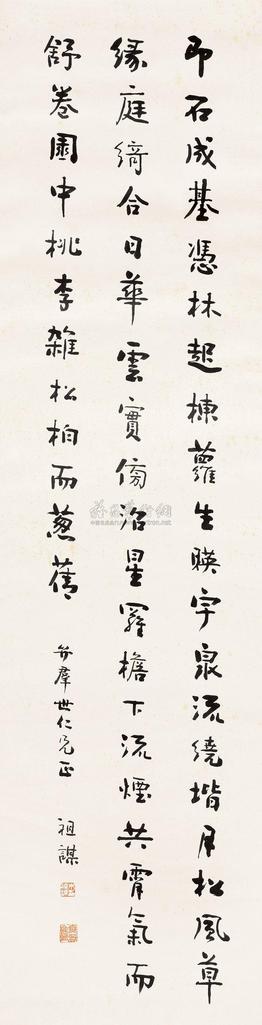 即石成基憑林起棟蘿生暎宇泉流繞堦月松風草
緣庭綺合日華雲實傍沼星羅檐下流煙共霄氣而
舒卷園中桃李雜松柏而蔥蒨
羣世仁兄正
祖謀